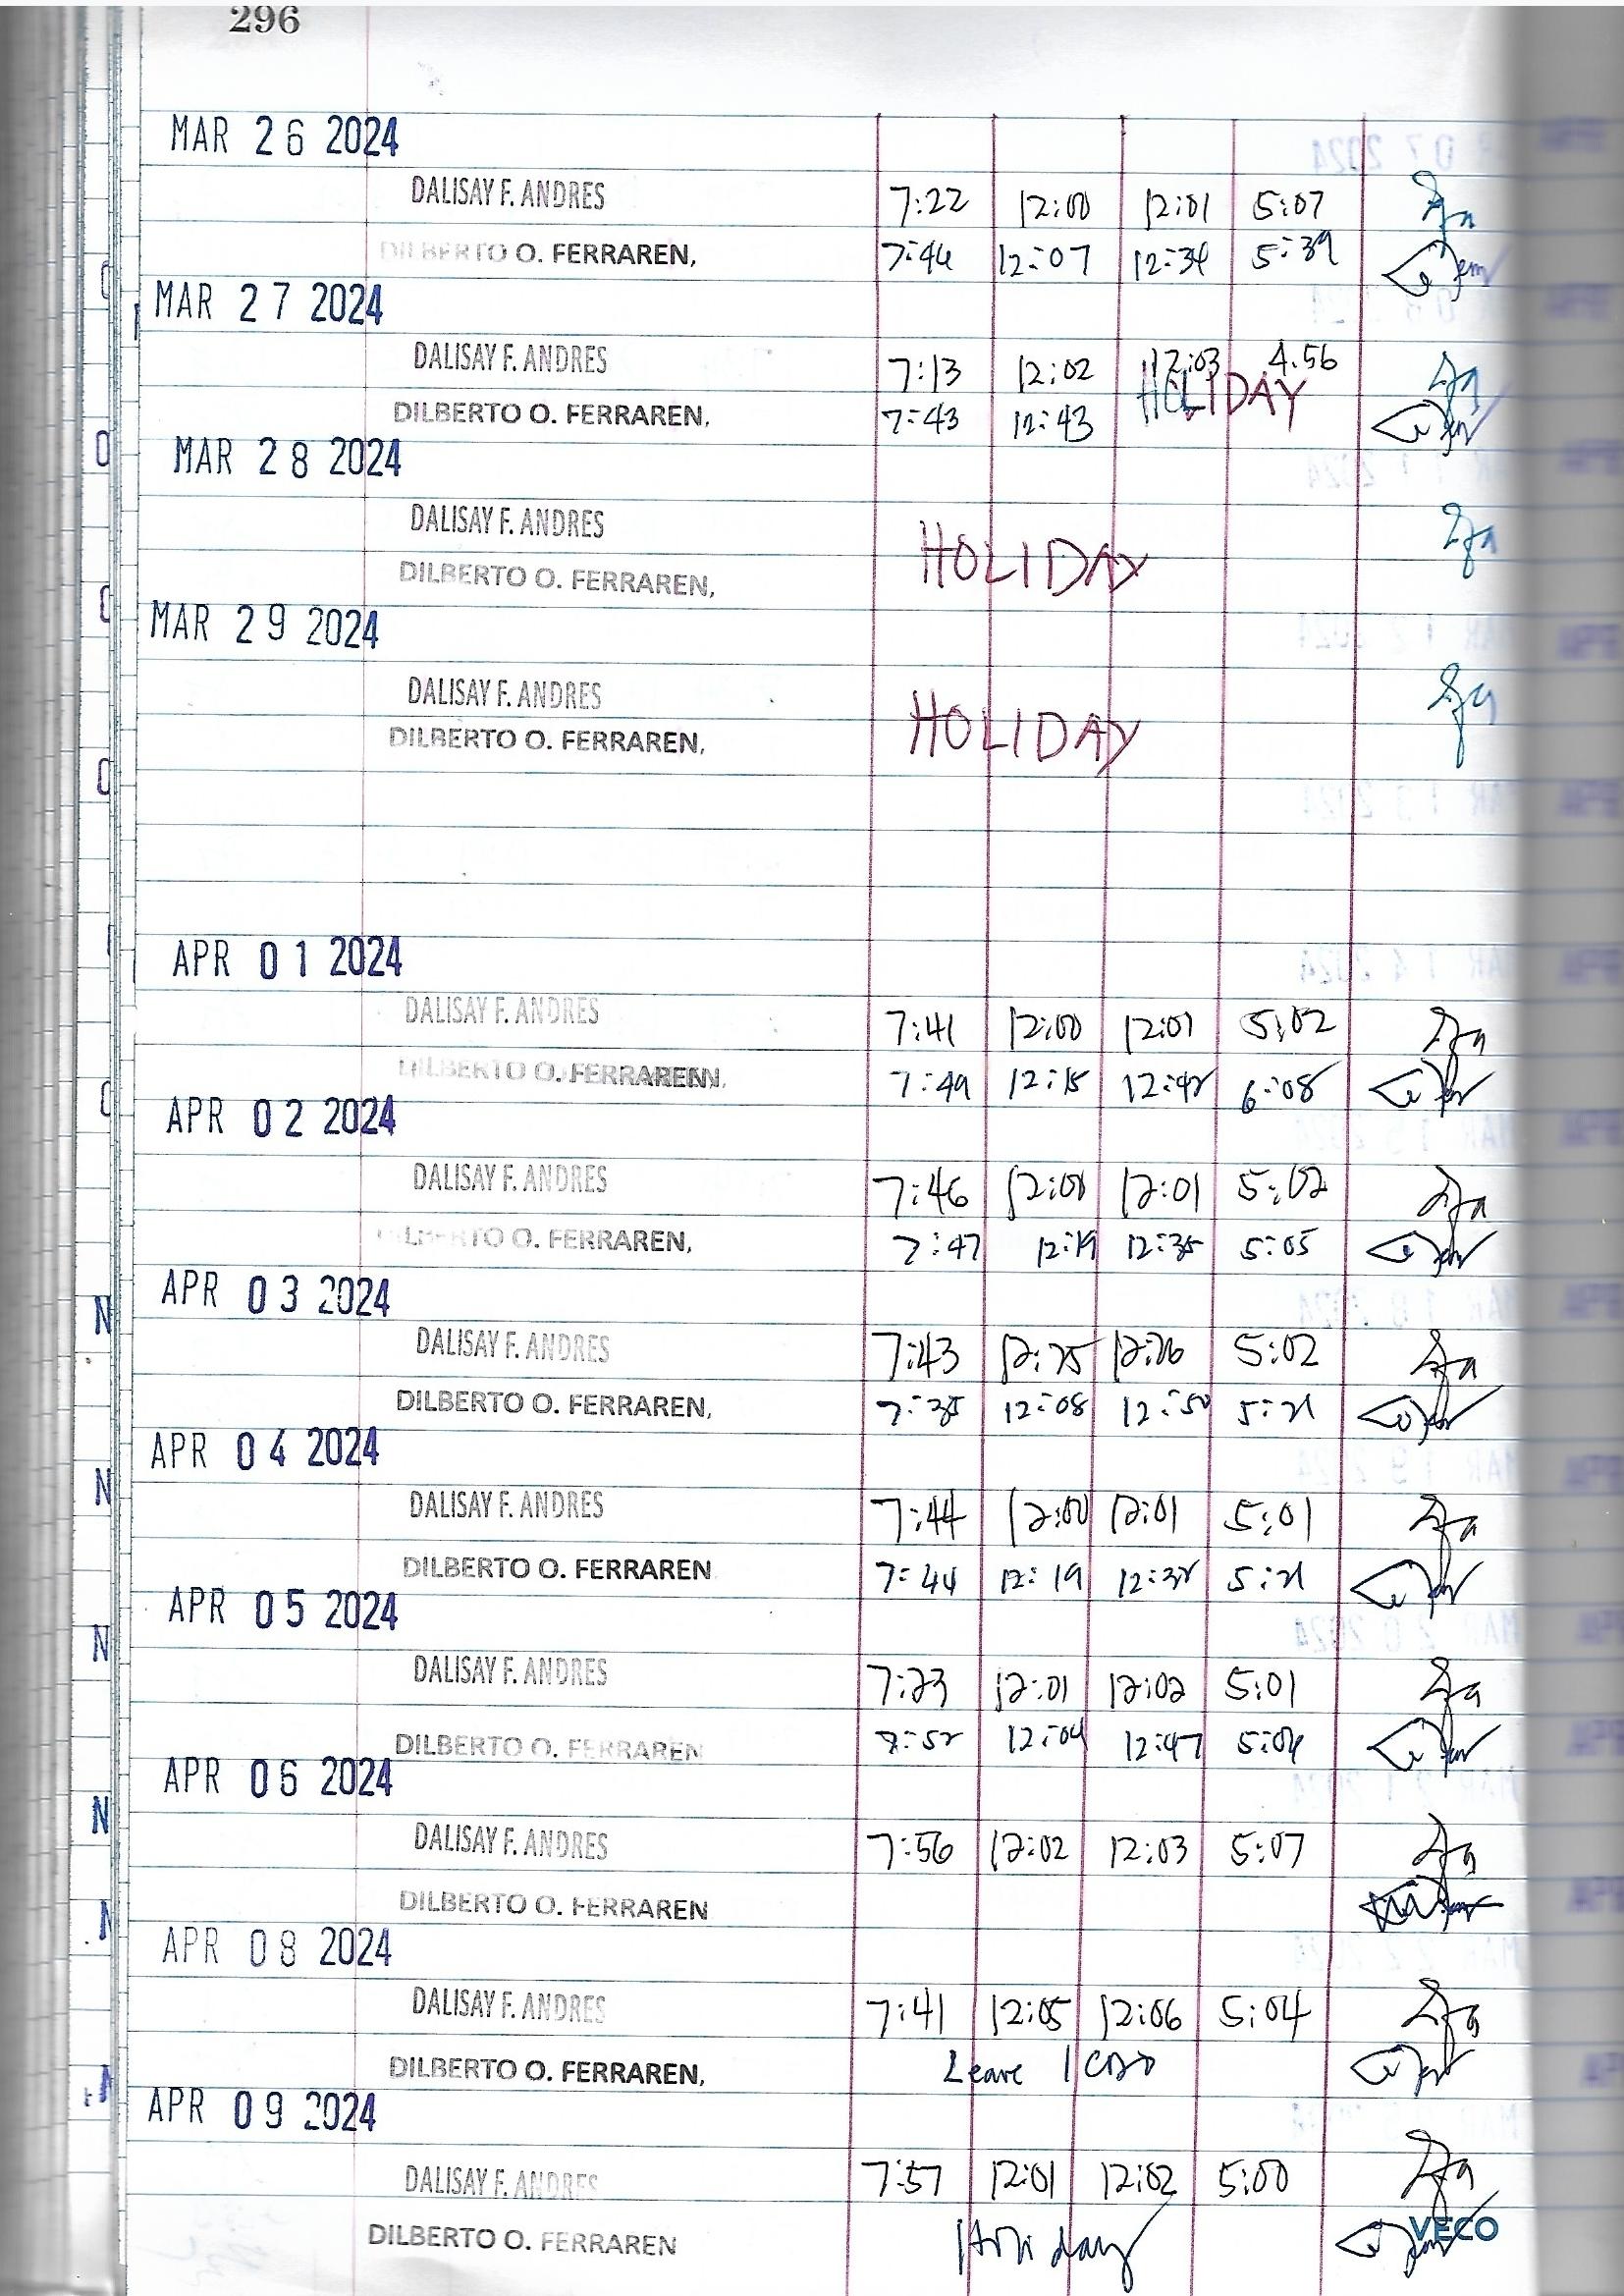 296
MAR 26 2024
DALISAY F. ANDRES 7:22 12:00 12:01 5:07
DILBERTO O. FERRAREN, 7:46 12:07 12:34 5:39
MAR 27 2024
DALISAY F. ANDRES 7:13 12:02 12:03 4.56
HOLIDAY
DILBERTO O. FERRAREN, 7:43 12:43
MAR 28 2024
DALISAY F. ANDRES
HOLIDAY
DILBERTO O. FERRAREN,
MAR 29 2024
DALISAY F. ANDRES
HOLIDAY
DILBERTO O. FERRAREN,
APR 01 2024
DALISAY F. ANDRES 7:41 12:00 12:01 5:02
DILBERTO O. FERRAREN, 7:49 12:15 12:42 6:08
APR 02 2024
DALISAY F. ANDRES 7:46 12:00 12:01 5:02
DILBERTO O. FERRAREN, 7:47 12:19 12:35 5:05
APR 03 2024
DALISAY F. ANDRES 7:43 12:25 12:26 5:02
DILBERTO O. FERRAREN, 7:35 12:08 12:50 5:21
APR 04 2024
DALISAY F. ANDRES 7:44 12:00 12:01 5:01
DILBERTO O. FERRAREN 7:44 12:19 12:32 5:21
APR 05 2024
DALISAY F. ANDRES 7:23 12:01 12:02 5:01
DILBERTO O. FERRAREN 7:52 12:04 12:47 5:04
APR 06 2024
DALISAY F. ANDRES 7:56 12:02 12:03 5:07
DILBERTO O. FERRAREN
APR 08 2024
DALISAY F. ANDRES 7:41 12:05 12:06 5:04
DILBERTO O. FERRAREN, Leave 1
APR 09 2024
DALISAY F. ANDRES 7:57 12:01 12:02 5:00
DILBERTO O. FERRAREN Holiday
VECO